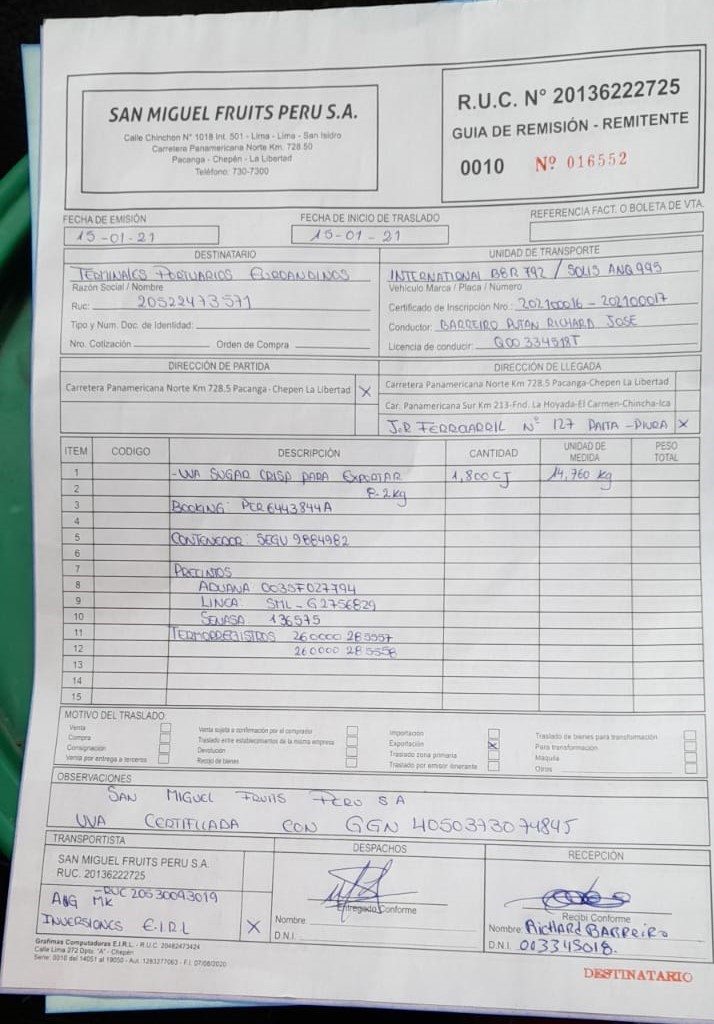 SAN MIGUEL FRUITS PERU S.A.
Calle Chinchon N° 1018 Int. 501 - Lima - Lima - San Isidro
Carretera Panamericana Norte Km. 728.50
Pacanga - Chepén - La Libertad
Teléfono: 730-7300
R.U.C. N° 20136222725
GUIA DE REMISIÓN - REMITENTE
0010 Nº 016552
FECHA DE EMISIÓN
15-01-21
FECHA DE INICIO DE TRASLADO
15-01-21
REFERENCIA FACT. O BOLETA DE VTA.
DESTINATARIO
TERMINALES PORTUARIOS EUROANDINOS
Razón Social / Nombre
Ruc: 20522473571
Tipo y Num. Doc. de Identidad:
Nro. Cotización Orden de Compra
UNIDAD DE TRANSPORTE
INTERNATIONAL B8R 792 / SOLIS ANQ 995
Vehículo Marca / Placa / Número
Certificado de Inscripción Nro: 202100016 - 202100017
Conductor: BARREIRO PUTAN RICHARD JOSE
Licencia de conducir: Q00334518T
DIRECCIÓN DE PARTIDA
Carretera Panamericana Norte Km 728.5 Pacanga-Chepen La Libertad X
DIRECCIÓN DE LLEGADA
Carretera Panamericana Norte Km 728.5 Pacanga-Chepen La Libertad
Car. Panamericana Sur Km 213-Fnd. La Hoyada-El Carmen-Chincha-Ica
J.R FERROCARRIL N° 127 PAITA - PIURA X
ITEM CODIGO DESCRIPCIÓN CANTIDAD UNIDAD DE MEDIDA PESO TOTAL
1 - UVA SUGAR CRISP PARA EXPORTAR 1,800 CJ 14,760 kg
2 8.2kg
3 BOOKING: PER6443844A
4
5 CONTENEDOR: SEGU 9884982
6
7 PRECINTOS
8 ADUANA: 0035F027794
9 LINEA: SML-G2756829
10 SENASA: 136575
11 TERMORREGISTROS 260000 285557
12 260000 285558
13
14
15
MOTIVO DEL TRASLADO
Venta
Compra
Consignación
Venta por entrega a terceros
Venta sujeta a confirmación por el comprador
Traslado entre establecimientos de la misma empresa
Devolución
Recojo de bienes
Importación
Exportación X
Traslado zona primaria
Traslado por emisor itinerante
Traslado de bienes para transformación
Para transformación
Maquila
Otros
OBSERVACIONES
SAN MIGUEL FRUITS PERU S A
UVA CERTIFICADA CON GGN 4050373074845
TRANSPORTISTA
SAN MIGUEL FRUITS PERU S.A.
RUC. 20136222725
- RUC 20530093019
ANG MK
INVERSIONES E.I.R.L X
DESPACHOS
Entregado Conforme
Nombre
D.N.I.
RECEPCIÓN
Recibí Conforme
Nombre: RICHARD BARREIRO
D.N.I. 003345018.
Grafimas Computadoras E.I.R.L. - R.U.C. 20482473424
Calle Lima 272 Dpto. "A" - Chepén
Serie: 0010 del 14051 al 19050 - Aut. 1283277063 - F.I. 07/08/2020
DESTINATARIO